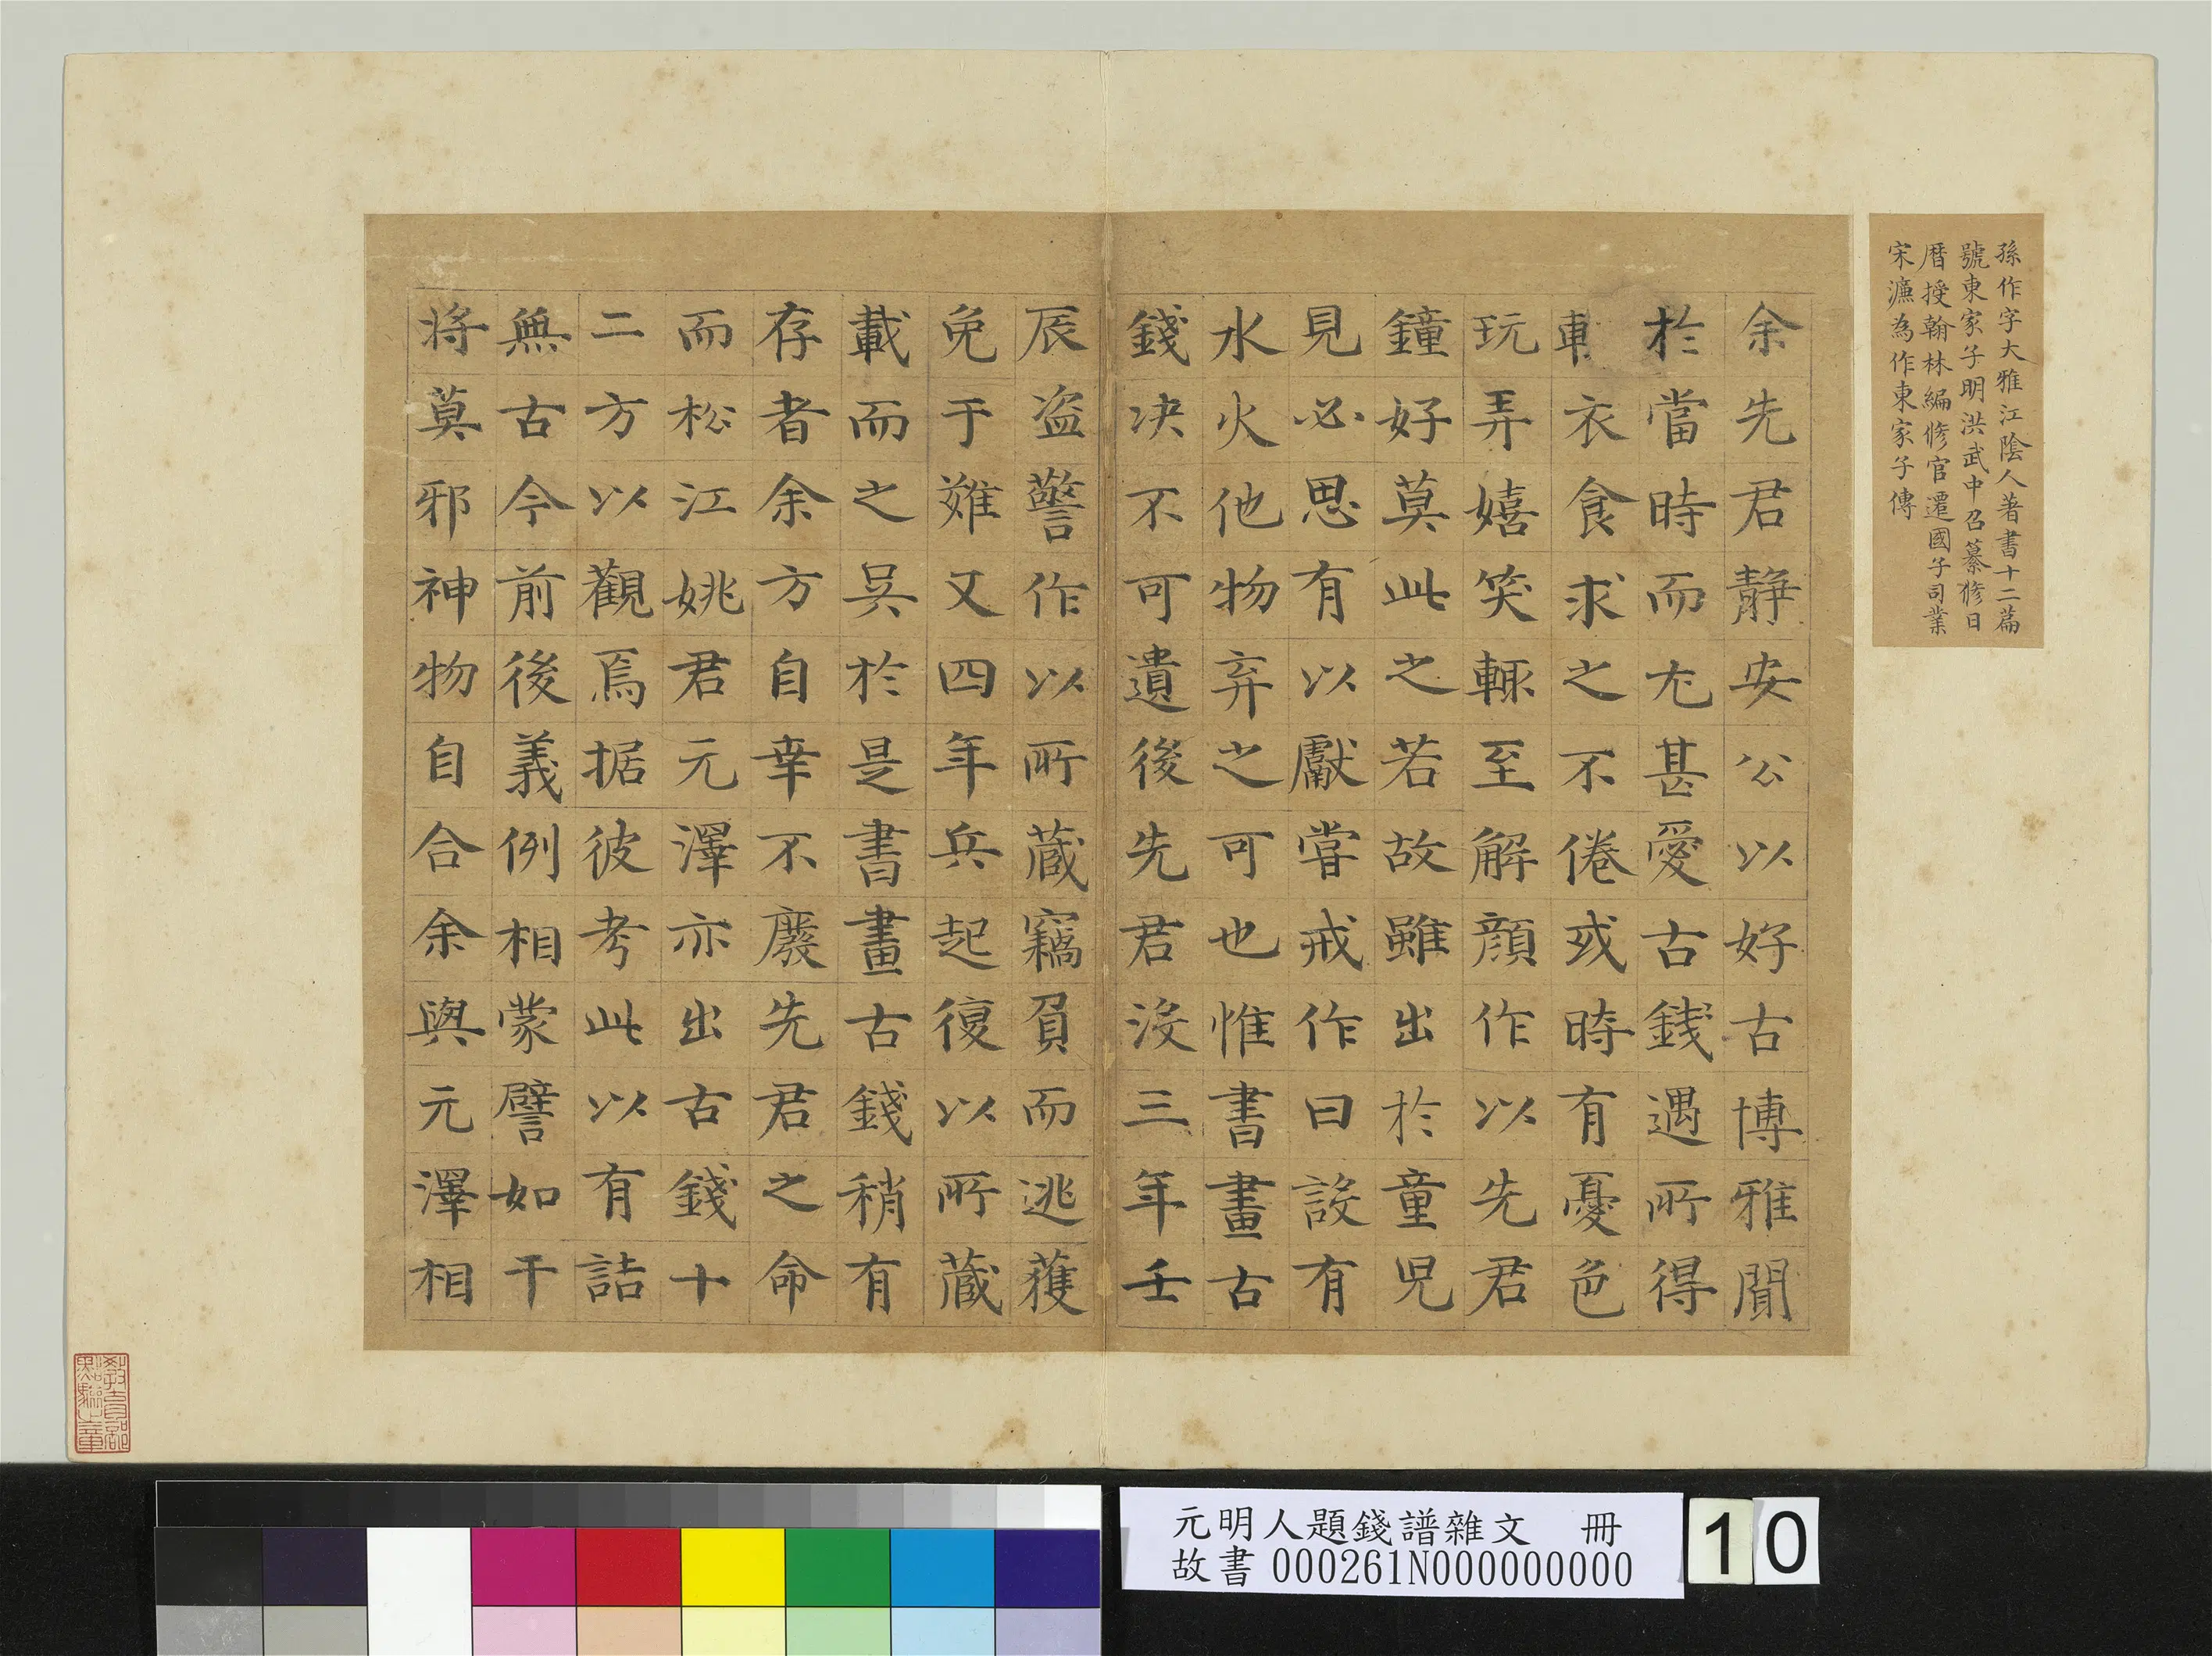 孫作字大雅江陰人著書十二篇
號東家子明洪武中召纂修日
曆授翰林編修官遷國子司業
宋濂為作東家子傳
余先君靜安公以好古博雅聞
於當時而尤甚愛古錢遇所得
輒衣食求之不倦或時有憂色
玩弄嬉笑輒至解顏作以先君
鐘好莫此之若故雖出於童兒
見必思有以獻嘗戒作曰設有
水火他物弃之可也惟書畫古
錢决不可遺後先君沒三年壬
辰盗警作以所藏竊負而逃獲
免于難又四年兵起復以所藏
載而之吳於是書畫古錢稍有
存者余方自幸不廢先君之命
而松江姚君元澤亦出古錢十
二方以觀焉据彼考此以有詰
無古今前後義例相蒙譬如干
將莫邪神物自合余與元澤相
元明人題錢譜雜文 冊
故書 000261N000000000
10